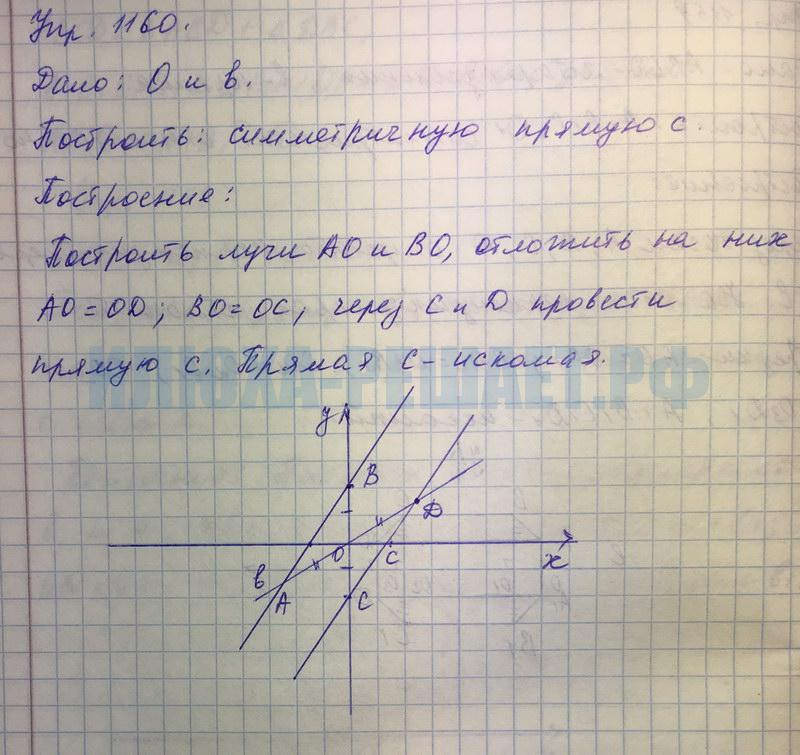 Упр. 1160.
Дано: О и в.
Построить: симметричную прямую с.
Построение:
Построить лучи АО и ВО, отложить на них
АО = ОD; ВО = ОС, через С и D провести
прямую с. Прямая с - искомая.
ИЛЮХА-РЕШАЕТ.РФ
у
В
D
О
с
х
в
А
С